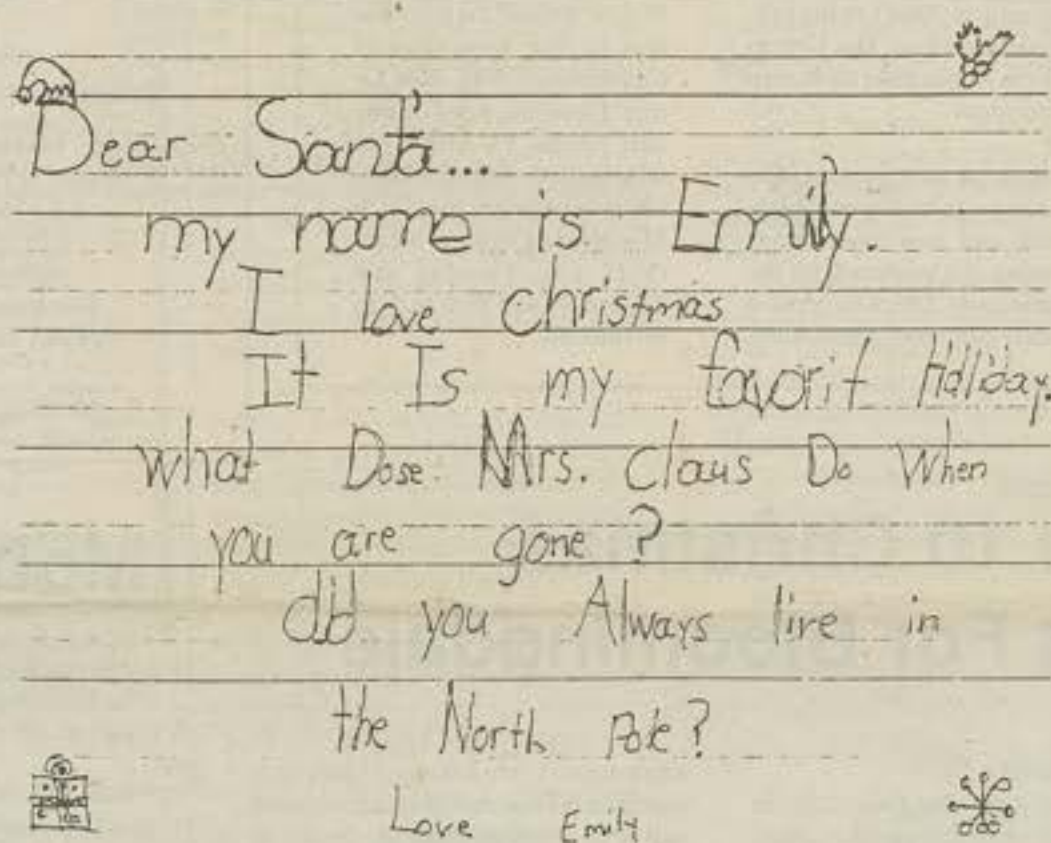 Dear Santa...
my name is Emily.
I love christmas
It Is my favorit Holiday.
what Dose Mrs. Claus Do When
you are gone?
did you Always live in
the North Pole?
Love Emily